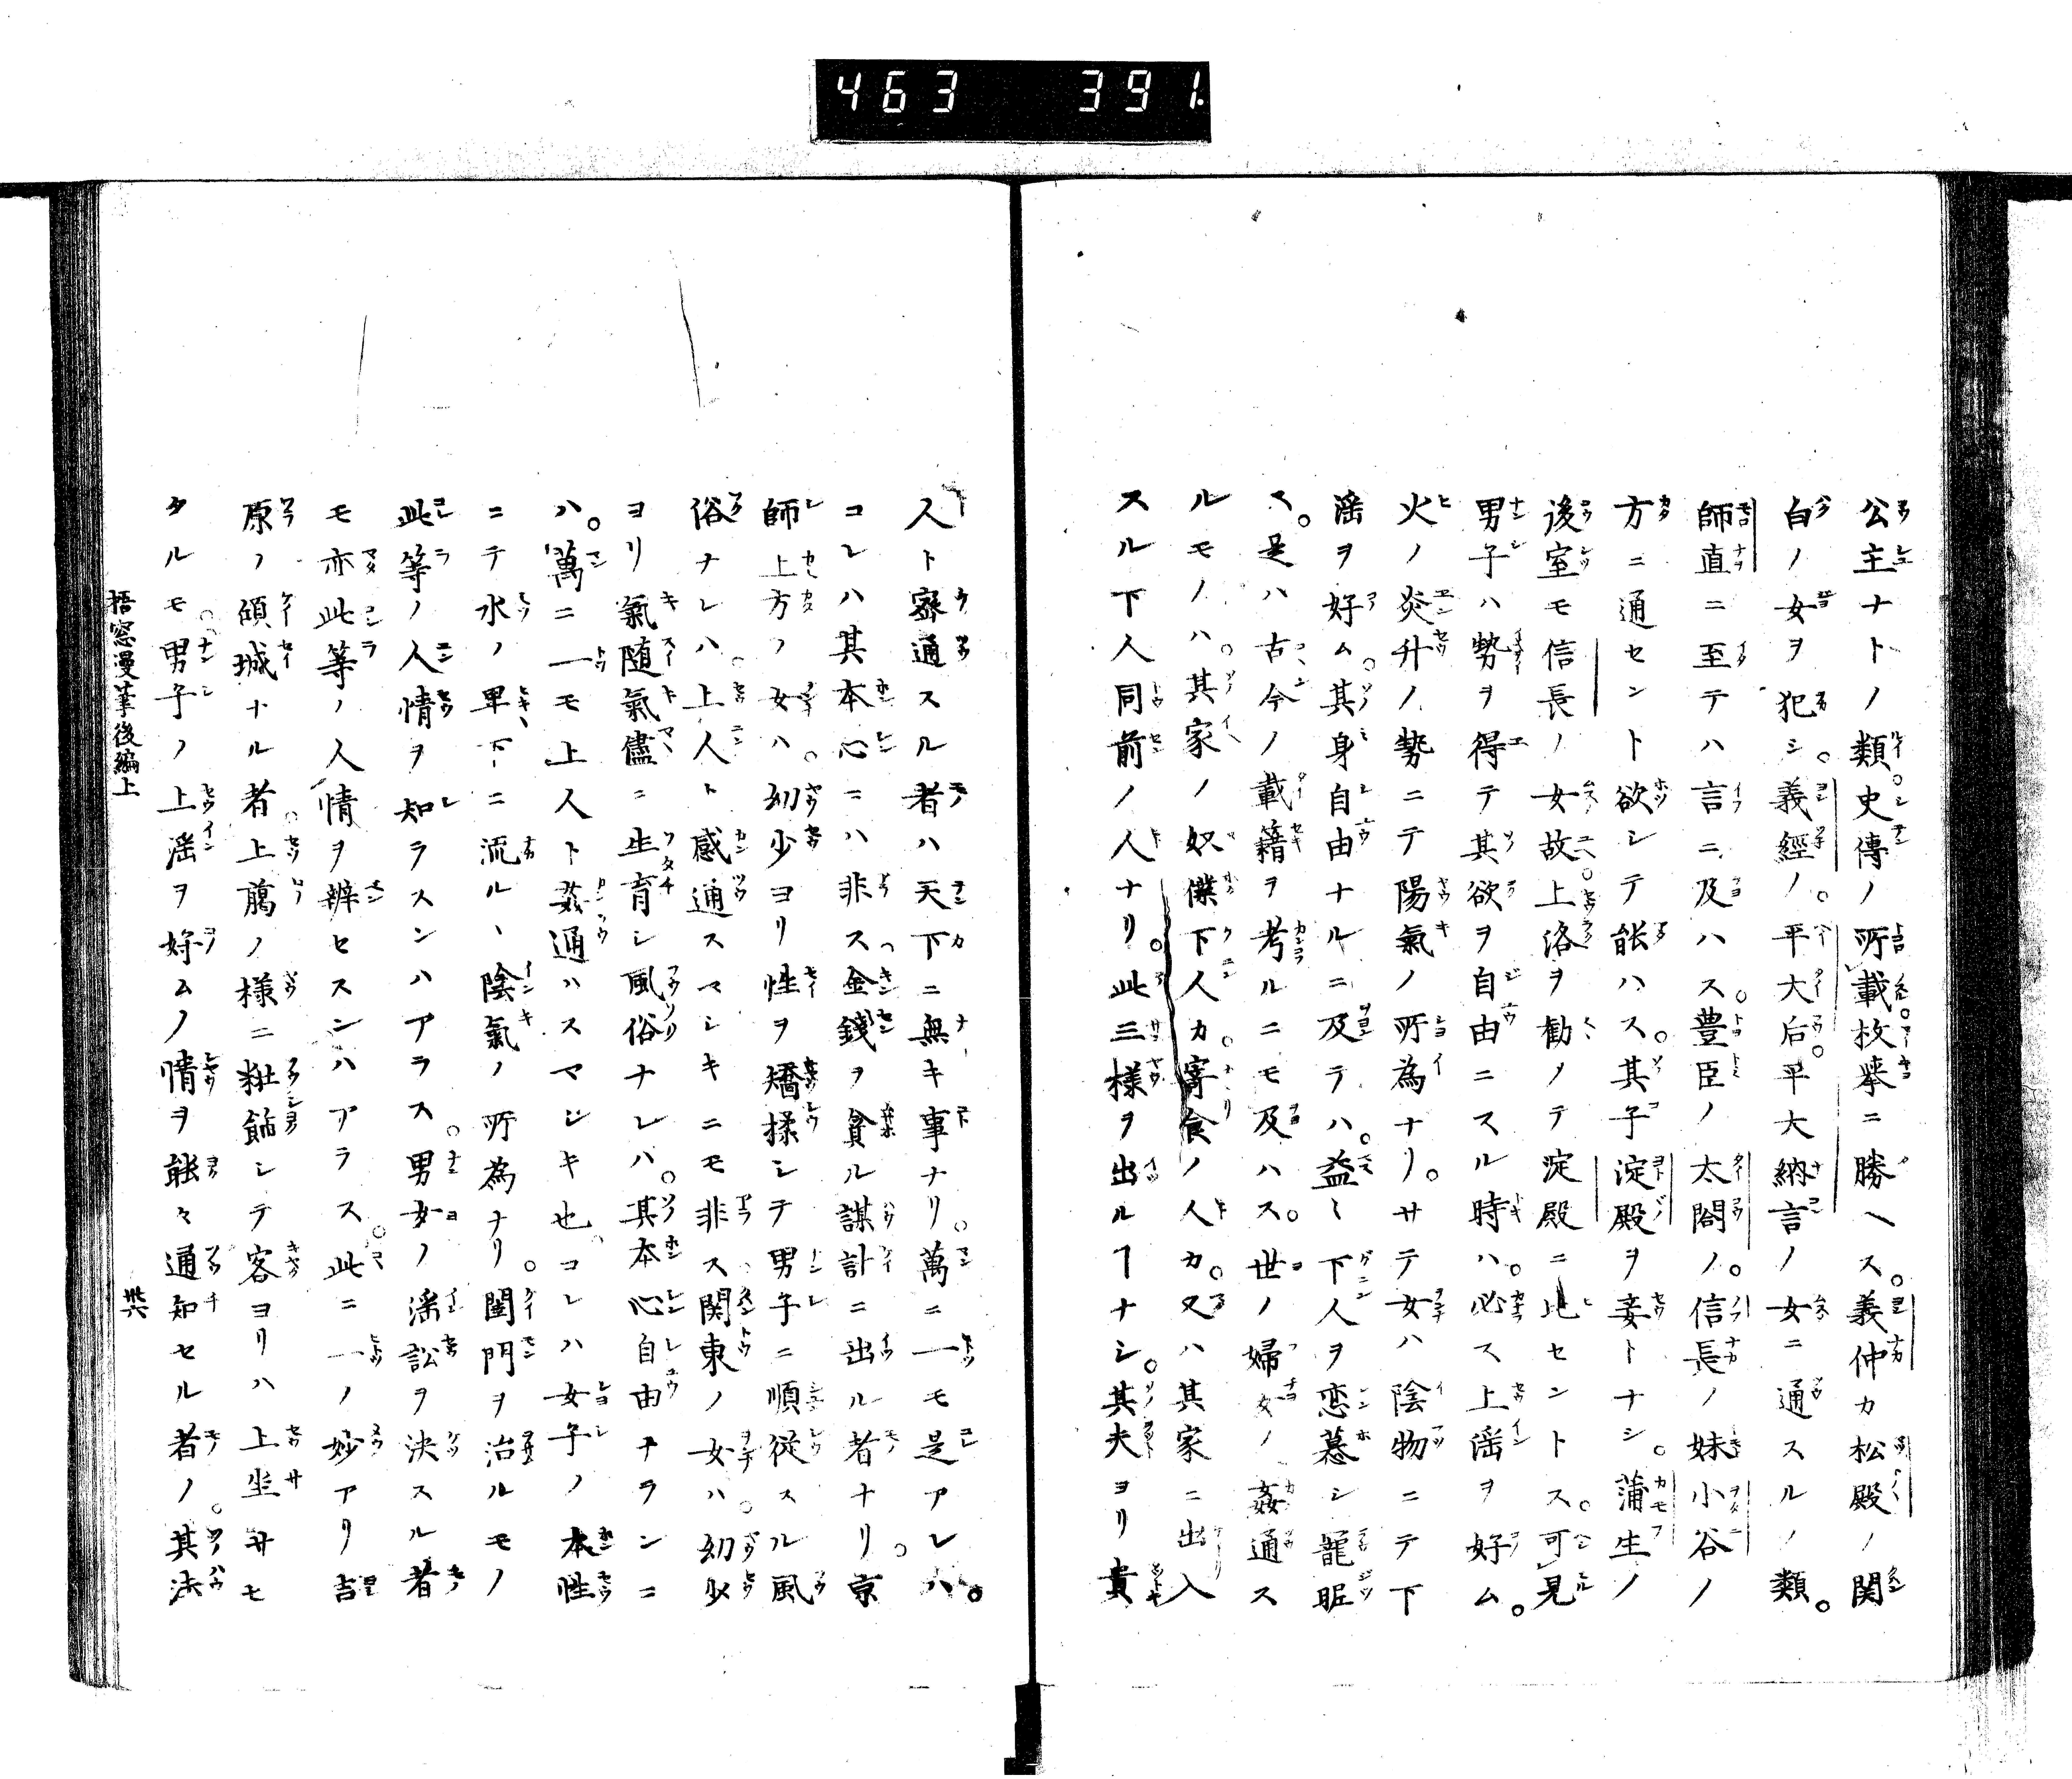 463 391.
公主ナトノ類。史傳ノ所載枚挙ニ勝ヘス。義仲カ松殿ノ関
白ノ女ヲ犯シ。義經ノ。平大后。平大納言ノ女ニ通スルノ類。
師直ニ至テハ言ニ及ハス。豊臣ノ太閤ノ。信長ノ妹小谷ノ
方ニ通セント欲シテ能ハス。其子淀殿ヲ妾トナシ。蒲生ノ
後室モ信長ノ女故。上洛ヲ勸メテ淀殿ニ比セントス。可見
男子ハ勢ヲ得テ其欲ヲ自由ニスル時ハ。必ス上淫ヲ好ム。
火ノ炎升ノ勢ニテ陽氣ノ所為ナリ。サテ女ハ陰物ニテ下
淫ヲ好ム。其身自由ナルニ及テハ。益〻下人ヲ恋慕シ寵昵
ス。是ハ古今ノ載籍ヲ考ルニモ及ハス。世ノ婦女ノ姦通ス
ルモノハ。其家ノ奴僕下人カ。寄食ノ人カ。又ハ其家ニ出入
スル下人同前ノ人ナリ。此三様ヲ出ルヿナシ。其夫ヨリ貴
人ト密通スル者ハ天下ニ無キ事ナリ。萬ニ一モ是アレハ。
コレハ其本心ニハ非ス金錢ヲ貪ル謀計ニ出ル者ナリ。京
師上方ノ女ハ。幼少ヨリ性ヲ矯揉シテ男子ニ順従スル風
俗ナレハ。上人ト感通スマシキニモ非ス関東ノ女ハ。幼少
ヨリ氣随氣儘ニ生育シ風俗ナレバ。其本心自由ナランニ
ハ。萬ニ一モ上人ト姦通ハスマジキ也。コレハ女子ノ本性
ニテ水ノ卑下ニ流ルヽ陰氣ノ所為ナリ。閨門ヲ治ルモノ
此等ノ人情ヲ知ラスンハアラス。男女ノ淫訟ヲ決スル者
モ亦此等ノ人情ヲ辨セスンハアラス。此ニ一ノ妙アリ吉
原ノ傾城ナル者。上﨟ノ様ニ粧飾シテ客ヨリハ上坐サセ
タルモ。男子ノ上淫ヲ好ムノ情ヲ能々通知セル者ノ。其法
梧窓漫筆後編上
卅六